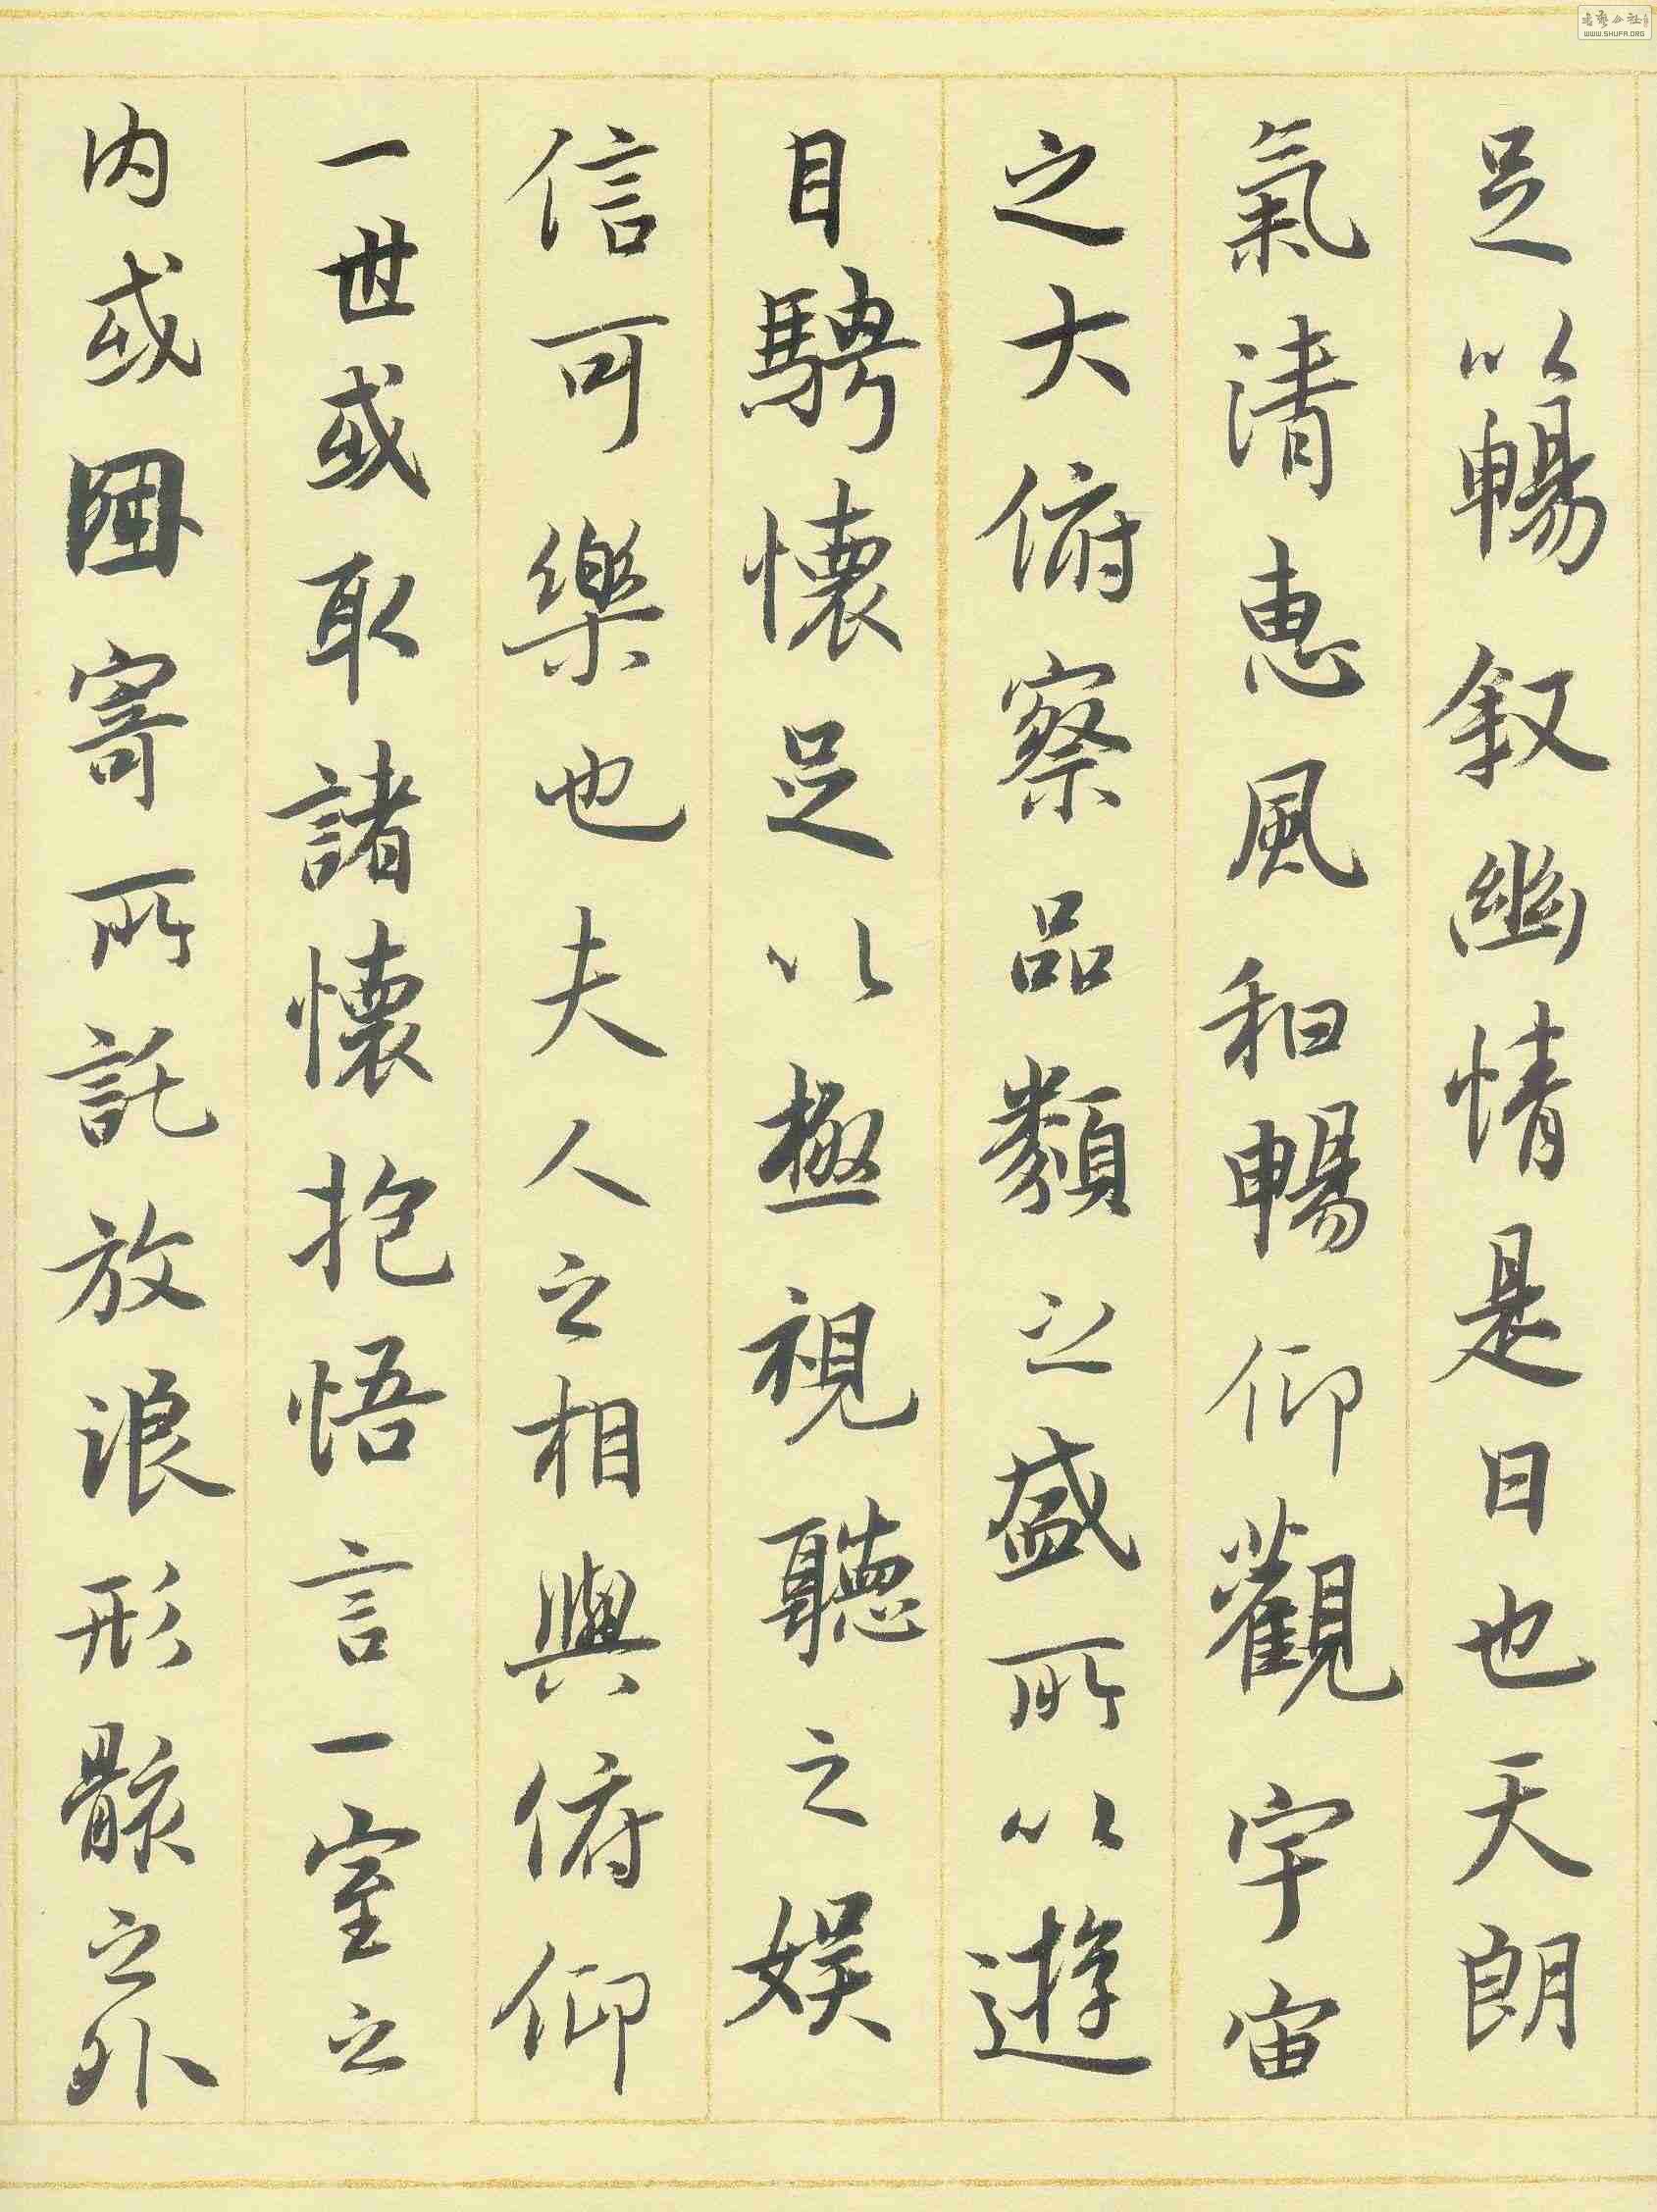 足以暢叙幽情是日也天朗
氣清惠風和暢仰觀宇宙
之大俯察品類之盛所以遊
目騁懷足以極視聽之娛
信可樂也夫人之相與俯仰
一世或取諸懷抱悟言一室之
内或因寄所託放浪形骸之外
WWW.SHUFA.ORG